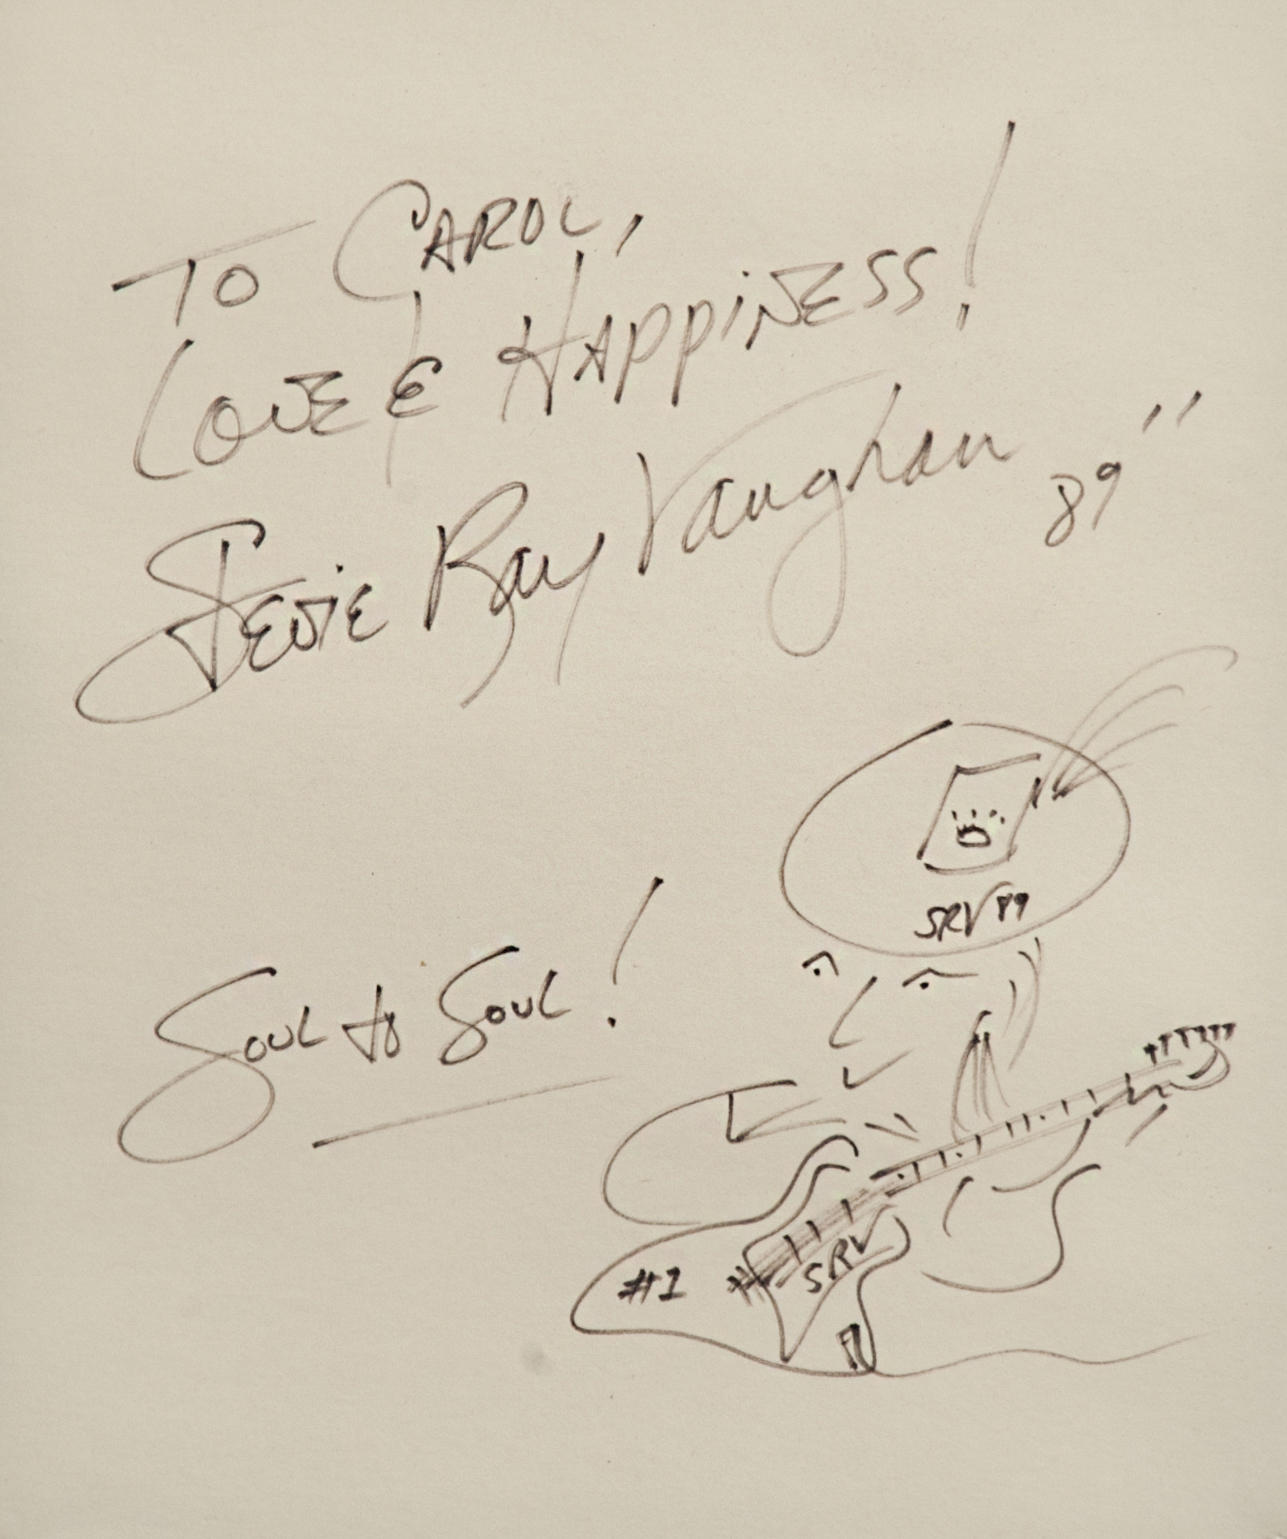 To CAROL,
LOVE & HAPPiNESS!
Stevie Ray Vaughan 89"
SRV 89
Soul to Soul!
SRV
#1